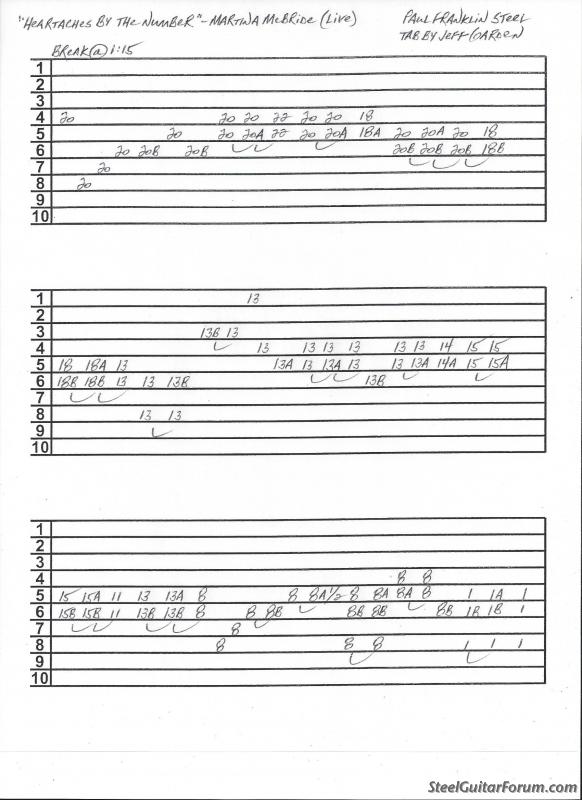 "HEARTACHES BY THE NUMBER" - MARTINA MCBRIDE (LIVE)
PAUL FRANKLIN STEEL
TAB BY JEFF GARDEN
BREAK @ 1:15
1
2
3
4 20 20 20 22 20 20 18
5 20 20 20A 22 20 20A 18A 20 20A 20 18
6 20 20B 20B 20B 20B 20B 18B
7 20
8 20
9
10
1 13
2
3 13B 13
4 13 13 13 13 13 13 14 15 15
5 18 18A 13 13A 13 13A 13 13 13A 14A 15 15A
6 18B 18B 13 13 13B 13B
7
8 13 13
9
10
1
2
3
4 8 8
5 15 15A 11 13 13A 8 8 8A1/2 8 8A 8A 8 1 1A 1
6 15B 15B 11 13B 13B 8 8 8B 8B 8B 8B 1B 1B 1
7 8
8 8 8 8 1 1 1
9
10
SteelGuitarForum.com